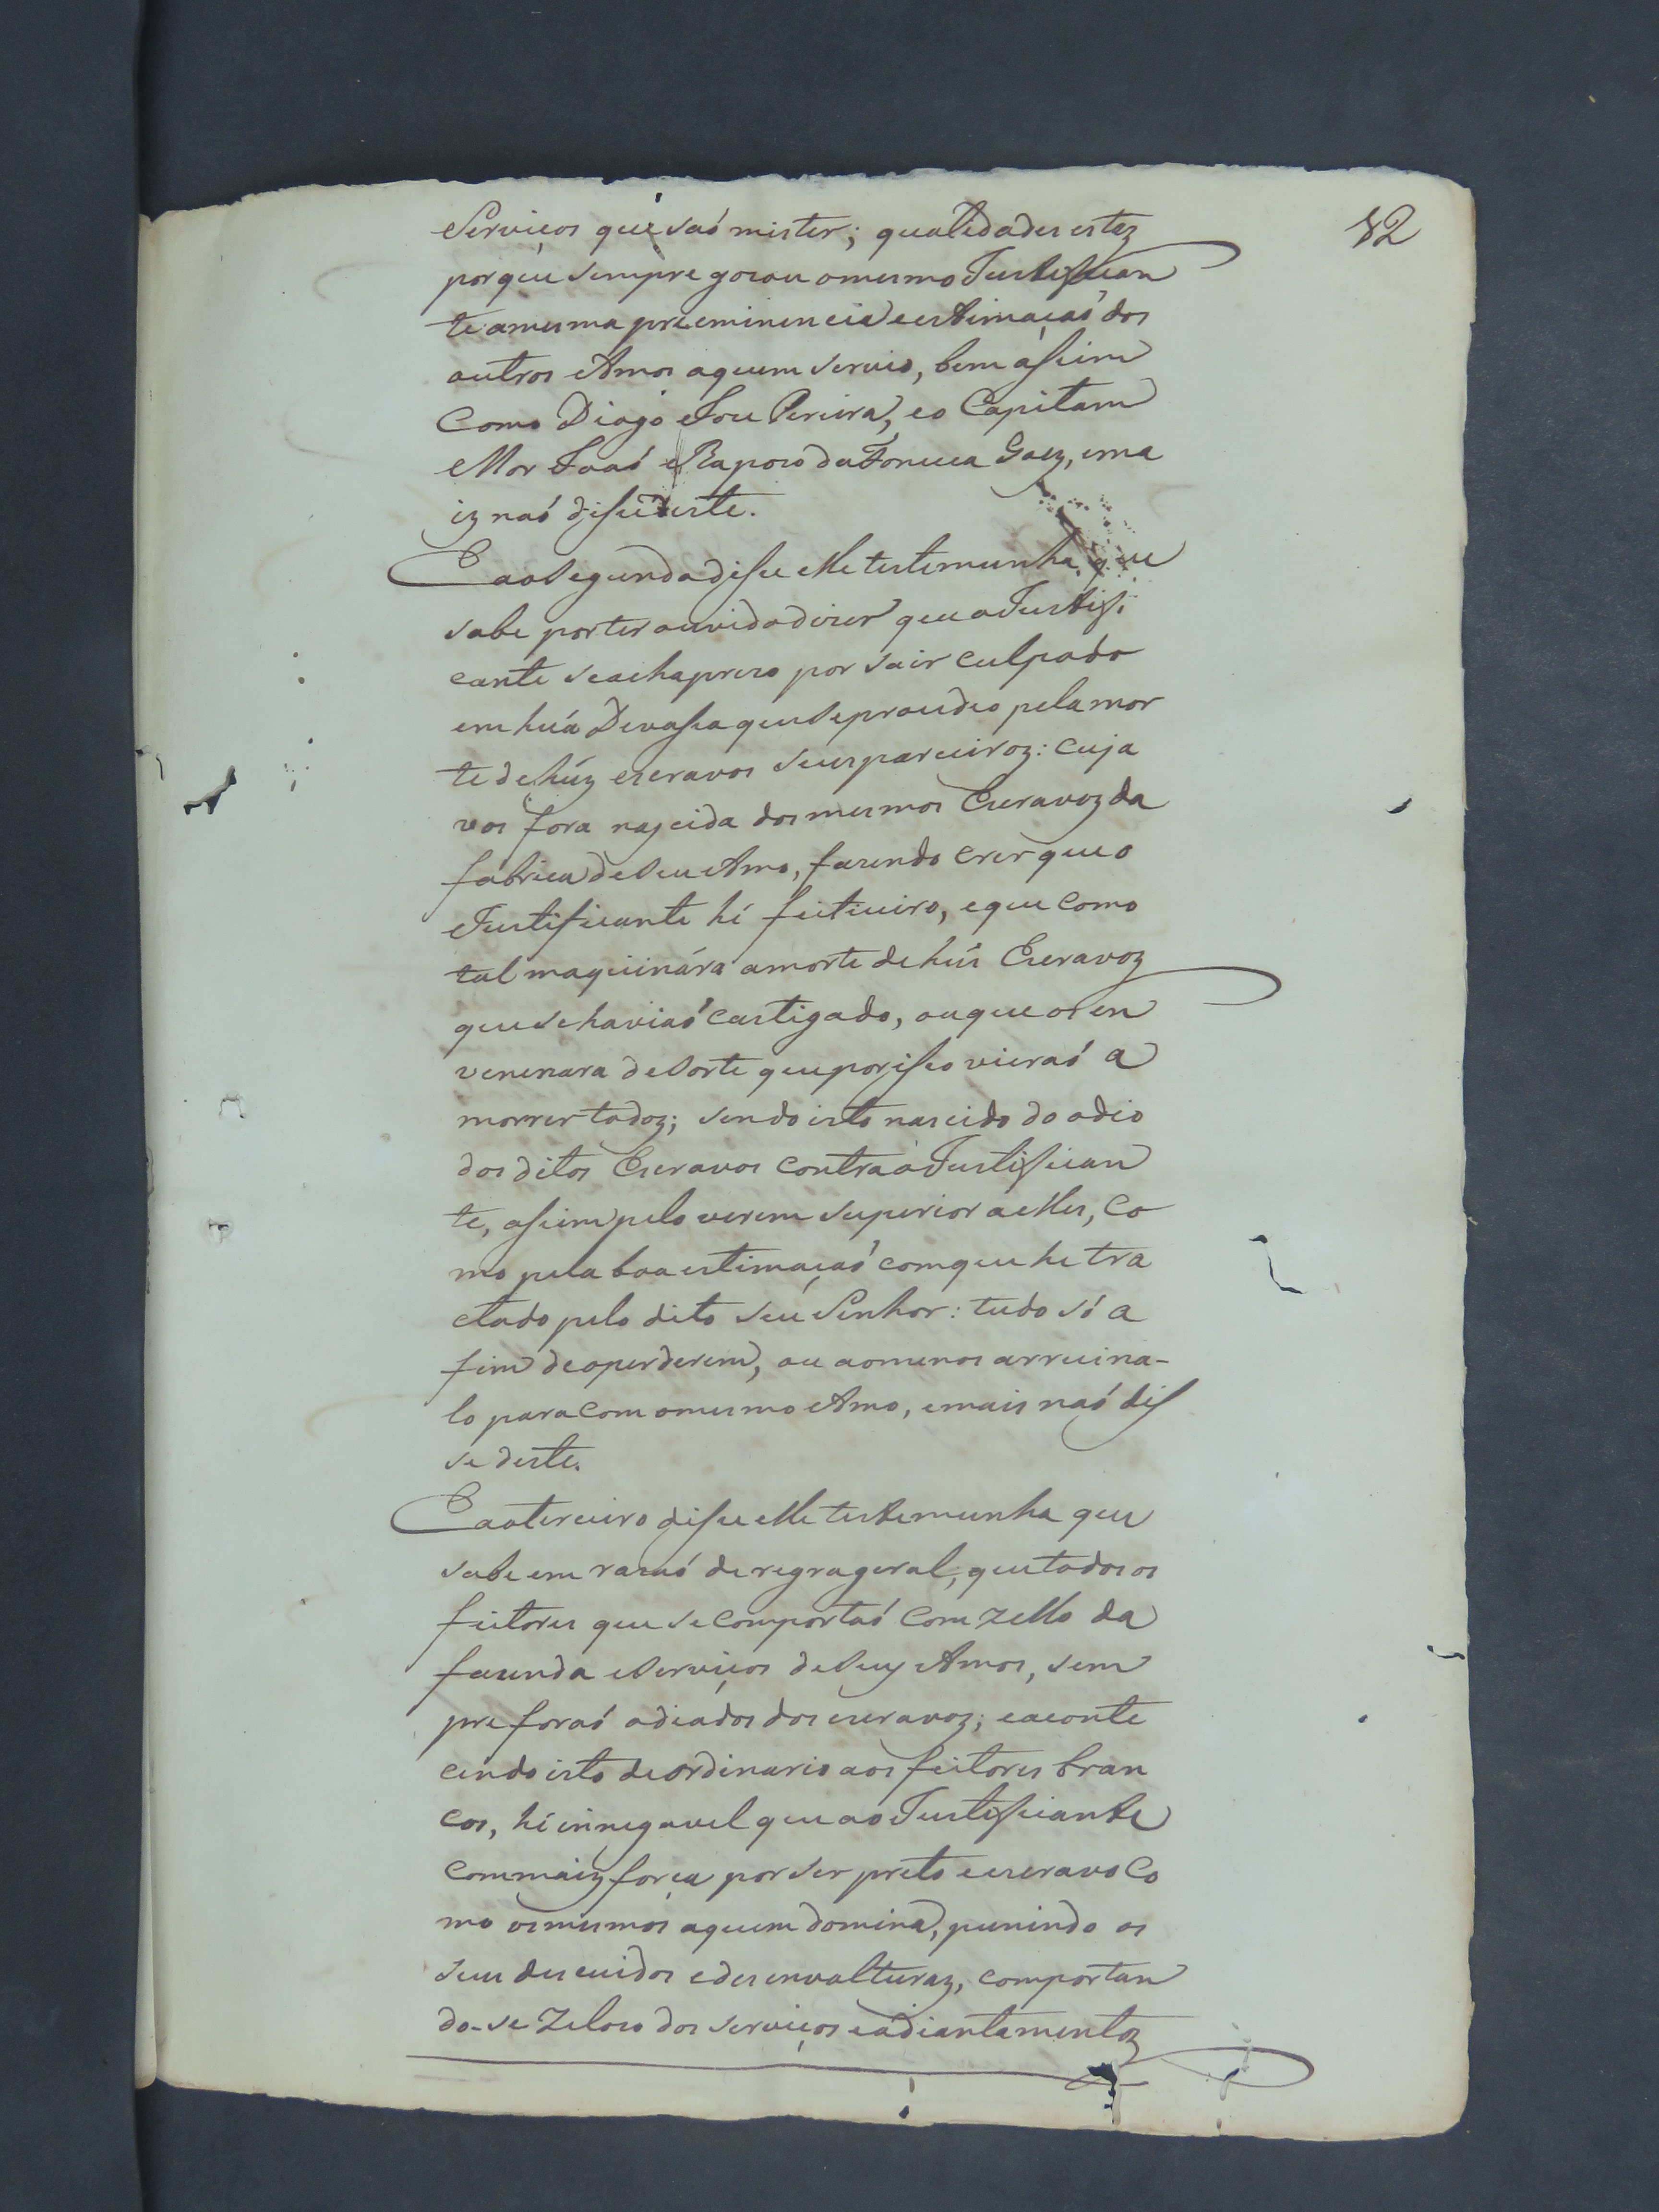 82
Serviços que saó mister; qualidades estaz
porque sempre gozou o mesmo Justifican
te a mesma preeminencia e estimaçaó dos
outros Amos aquem servio, bem assim
Como Diogo Joze Pereira, eo Capitam
Mor Joaó Rapozo da Fonceca Goez, ema
iz naó disse deste.
E ao Segundo disse elle testemunha, que
sabe por ter ouvido dizer que o Justifi
cante se acha prezo por sair culpado
em hua Devassa que se procedeo pela mor
te de huz escravos seus parceiroz: Cuja
voz fora nascida dos mesmos Escravoz da
fabrica de seu Amo, fazendo crer que o
Justificante hé feiticeiro, e que Como
tal maquinára a morte de hus Escravoz
que se haviaó Castigado, ou que os en
venenara de sorte que por isso vieraó a
morrer todoz; sendo isto nascido do odio
dos ditos Escravos Contra o Justifican
te, assim pelo verem superior a elles, Co
mo pela boa estimaçaó com que he tra
ctado pelo dito seu Senhor: tudo só a
fim de o perderem, ou ao menos arruina-
lo para Com o mesmo Amo, e mais naó dis
se deste.
E ao terceiro disse elle testemunha que
sabe em razaó de regra geral, que todos os
feitores que se Comportaó Com zello da
fazenda e serviços de seuz Amos, sem
pre foraó odiados dos escravoz; e aconte
cendo isto de ordinario aos feitores bran
cos, hé innegavel que ao Justificante
Com maiz força por ser preto e escravo Co
mo os mesmos aquem domina, punindo os
seus descuidos e desenvolturaz, comportan
do-se Zelozo dos serviços e adiantamentoz